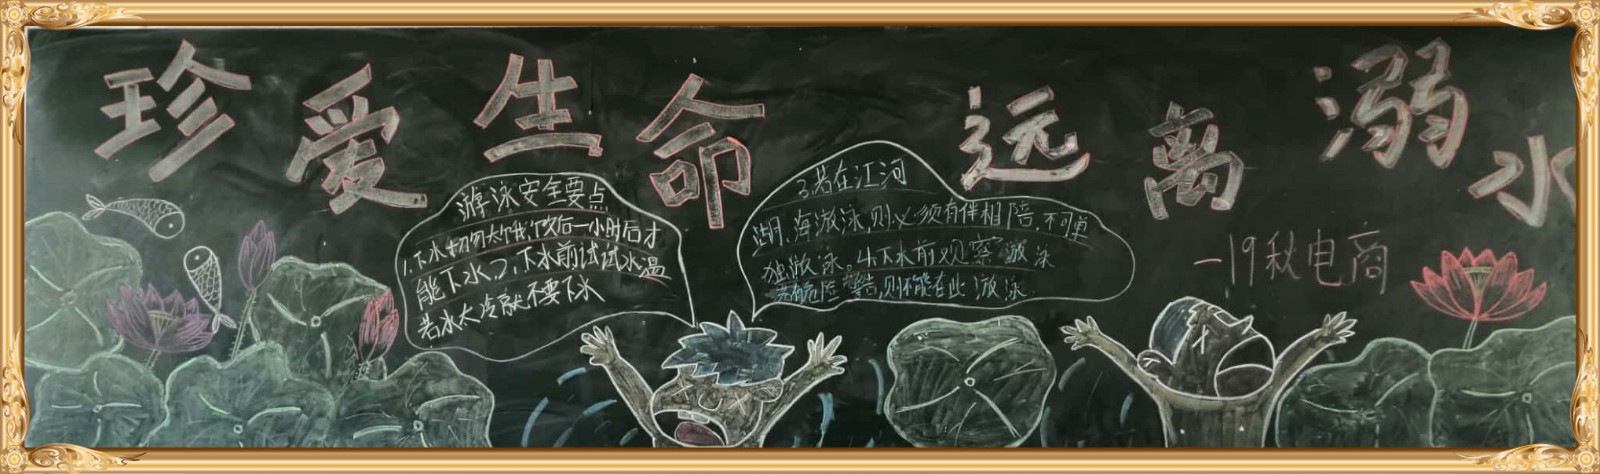 珍爱生命 远离溺水
游泳安全要点
1.下水切勿太饿、饭后一小时后才
能下水,2,下水前试试水温
若水太冷就不要下水
3若在江河
湖、海游泳,则必须有伴相陪,不可单
独游泳。4.下水前观察游泳
危险警告,则不能在此游泳
一19秋电商